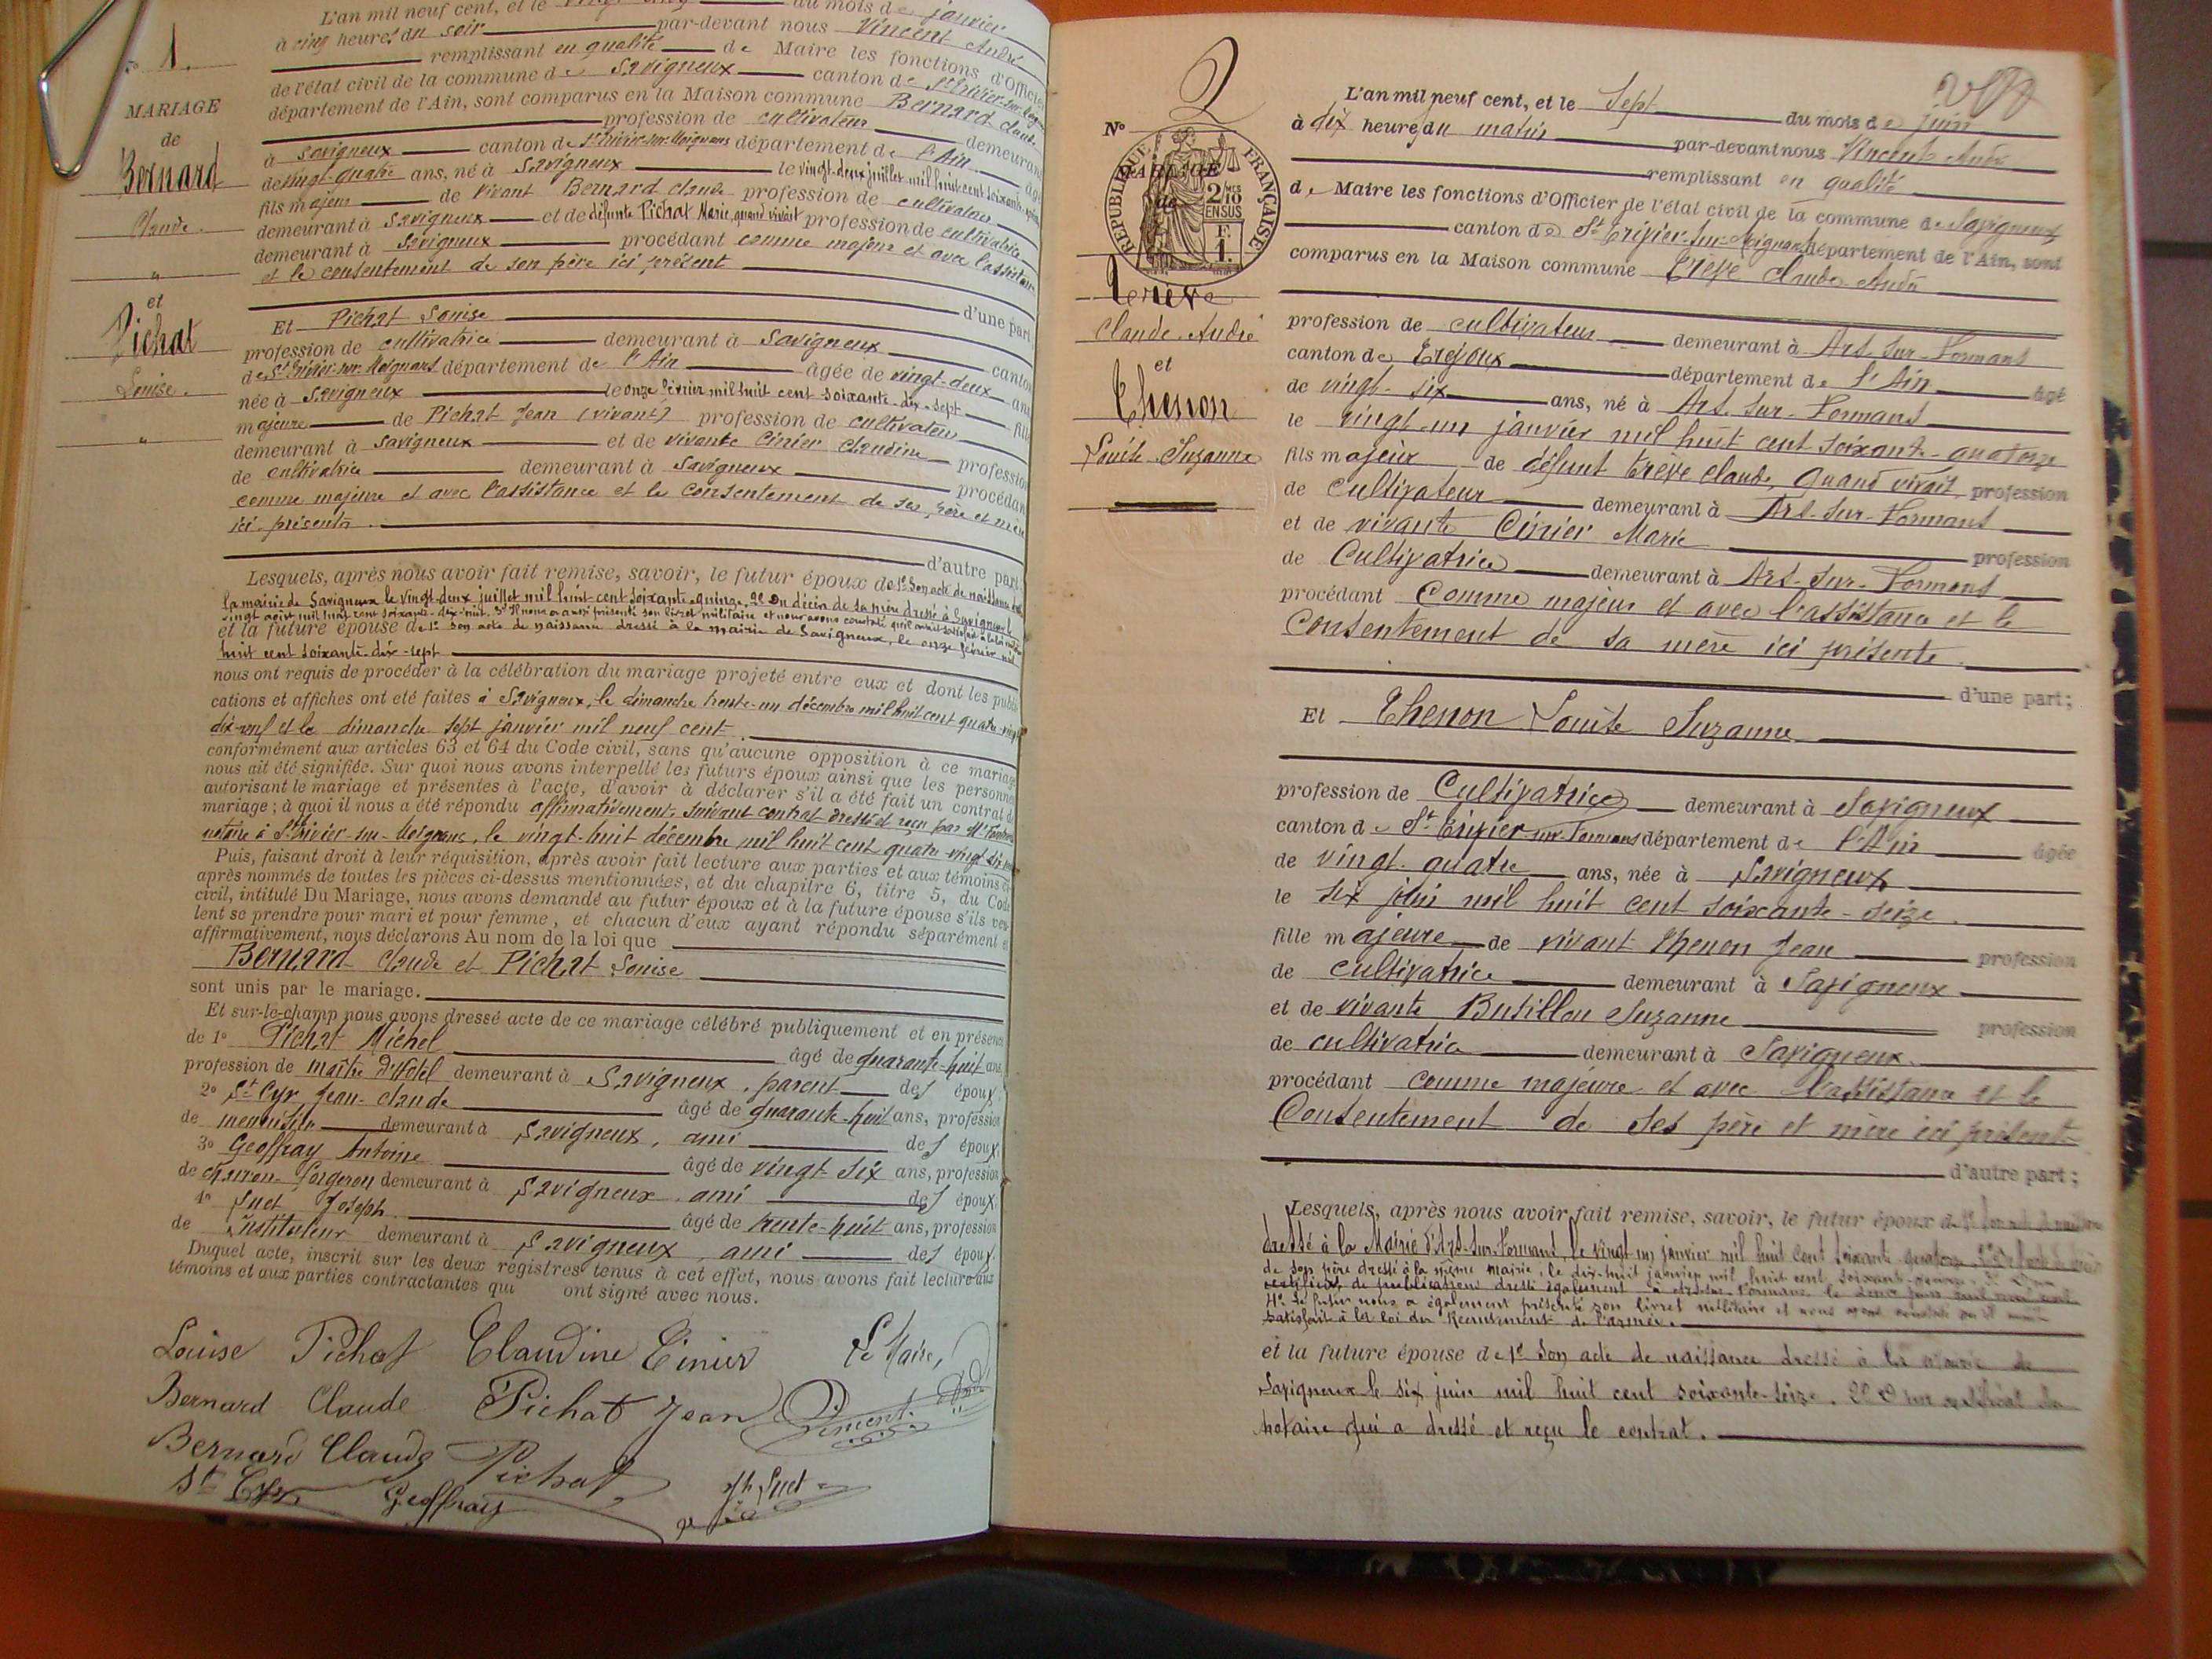 N° 1.
MARIAGE
de
Bernard
Claude.
"
et
Pichat
Louise.
"
L'an mil neuf cent, et le vingt cinq du mois de janvier
à cinq heures du soir par-devant nous Vincent André
remplissant en qualité de Maire les fonctions d'Officier
de l'état civil de la commune de Savigneux canton de St Trivier-sur-Moignans
département de l'Ain, sont comparus en la Maison commune Bernard Claude
profession de cultivateur demeurant
à Savigneux canton de St Trivier-sur-Moignans département de l'Ain âgé
de vingt-quatre ans, né à Savigneux le vingt-deux juillet mil huit cent soixante-quinze
fils majeur de vivant Bernard Claude profession de cultivateur
demeurant à Savigneux et de défunte Pichat Marie, quand vivait profession de cultivatrice
demeurant à Savigneux procédant comme majeur et avec l'assistance
et le consentement de son père ici présent
d'une part
Et Pichat Louise
profession de cultivatrice demeurant à Savigneux canton
de St Trivier-sur-Moignans département de l'Ain âgée de vingt-deux ans
née à Savigneux le onze février mil huit cent soixante-dix-sept fille
majeure de Pichat Jean (vivant) profession de cultivateur
demeurant à Savigneux et de vivante Cinier Claudine profession
de cultivatrice demeurant à Savigneux procédant
comme majeure et avec l'assistance et le consentement de ses père et mère
ici présents.
d'autre part;
Lesquels, après nous avoir fait remise, savoir, le futur époux de 1° Son acte de naissance
la mairie de Savigneux le vingt-deux juillet mil huit-cent soixante-quinze, 2° Du décès de sa mère dressé à Savigneux le
vingt août mil huit cent soixante-dix-huit, 3° Il nous a aussi présenté son livret militaire et nous avons constaté qu'il avait satisfait à la loi
et la future épouse de 1° son acte de naissance dressé à la mairie de Savigneux, le onze février mil
huit cent soixante-dix-sept
nous ont requis de procéder à la célébration du mariage projeté entre eux et dont les publi-
cations et affiches ont été faites à Savigneux, le dimanche trente-un décembre mil huit cent quatre-vingt
dix-neuf et le dimanche sept janvier mil neuf cent.
conformément aux articles 63 et 64 du Code civil, sans qu'aucune opposition à ce mariage
nous ait été signifiée. Sur quoi nous avons interpellé les futurs époux ainsi que les personnes
autorisant le mariage et présentes à l'acte, d'avoir à déclarer s'il a été fait un contrat de
mariage; à quoi il nous a été répondu affirmativement, suivant contrat dressé et reçu par Me
notaire à St Trivier-sur-Moignans, le vingt-huit décembre mil huit cent quatre-vingt dix-neuf
Puis, faisant droit à leur réquisition, après avoir fait lecture aux parties et aux témoins ci-
après nommés de toutes les pièces ci-dessus mentionnées, et du chapitre 6, titre 5, du Code
civil, intitulé Du Mariage, nous avons demandé au futur époux et à la future épouse s'ils veu-
lent se prendre pour mari et pour femme, et chacun d'eux ayant répondu séparément et
affirmativement, nous déclarons Au nom de la loi que
Bernard Claude et Pichat Louise
sont unis par le mariage.
Et sur-le-champ nous avons dressé acte de ce mariage célébré publiquement et en présence
de 1° Pichat Michel âgé de quarante-huit ans
profession de maître d'Hôtel demeurant à Savigneux, parent des époux
2° St Cyr Jean-Claude âgé de quarante-huit ans, profession
de menuisier demeurant à Savigneux, ami des époux
3° Geoffray Antoine âgé de vingt-six ans, profession
de charron-forgeron demeurant à Savigneux, ami des époux
4° Suet Joseph âgé de trente-huit ans, profession
de Instituteur demeurant à Savigneux, ami des époux.
Duquel acte, inscrit sur les deux registres tenus à cet effet, nous avons fait lecture aux
témoins et aux parties contractantes qui ont signé avec nous.
Louise Pichat Claudine Cinier Le Maire,
Bernard Claude Pichat Jean Vincent André
Bernard Claude Pichat Jh Suet
St Cyr Geoffray
N° 2
RÉPUBLIQUE FRANÇAISE
MARIAGE
de
2/10 MES
EN SUS
1 F.
Trève
Claude-André
et
Thenon
Louise-Suzanne
L'an mil neuf cent, et le Sept du mois de juin
à dix heures du matin par-devant nous Vincent André
remplissant en qualité
de Maire les fonctions d'Officier de l'état civil de la commune de Savigneux
canton de St Trivier-sur-Moignans département de l'Ain, sont
comparus en la Maison commune Trève Claude André
profession de cultivateur demeurant à Ars-sur-Formans
canton de Trévoux département de l'Ain âgé
de vingt-six ans, né à Ars-sur-Formans
le vingt-un janvier mil huit cent soixante-quatorze
fils majeur de défunt Trève Claude, quand vivait profession
de cultivateur demeurant à Ars-sur-Formans
et de vivante Cinier Marie profession
de Cultivatrice demeurant à Ars-sur-Formans
procédant Comme majeur et avec l'assistance et le
Consentement de sa mère ici présente.
d'une part;
Et Thenon Louise Suzanne
profession de Cultivatrice demeurant à Savigneux
canton de St Trivier-sur-Formans département de l'Ain âgée
de vingt-quatre ans, née à Savigneux
le six juin mil huit cent soixante-seize.
fille majeure de vivant Thenon Jean profession
de cultivatrice demeurant à Savigneux
et de vivante Butillon Suzanne profession
de cultivatrice demeurant à Savigneux.
procédant comme majeure et avec l'assistance et le
Consentement de ses père et mère ici présents
d'autre part;
Lesquels, après nous avoir fait remise, savoir, le futur époux de 1° Son acte de naissance
dressé à la Mairie d'Ars-sur-Formans, le vingt un janvier mil huit cent soixante quatorze, 2°
de son père dressé à la même mairie, le dix-huit janvier mil huit cent soixante
certificat de publications dressé également à Ars-sur-Formans le deux juin mil neuf cent
4° Le futur nous a également présenté son livret militaire et nous avons constaté qu'il avait
satisfait à la loi du Recrutement de l'armée.
et la future épouse de 1° Son acte de naissance dressé à la mairie de
Savigneux le six juin mil huit cent soixante-seize. 2° D'un certificat du
notaire qui a dressé et reçu le contrat.